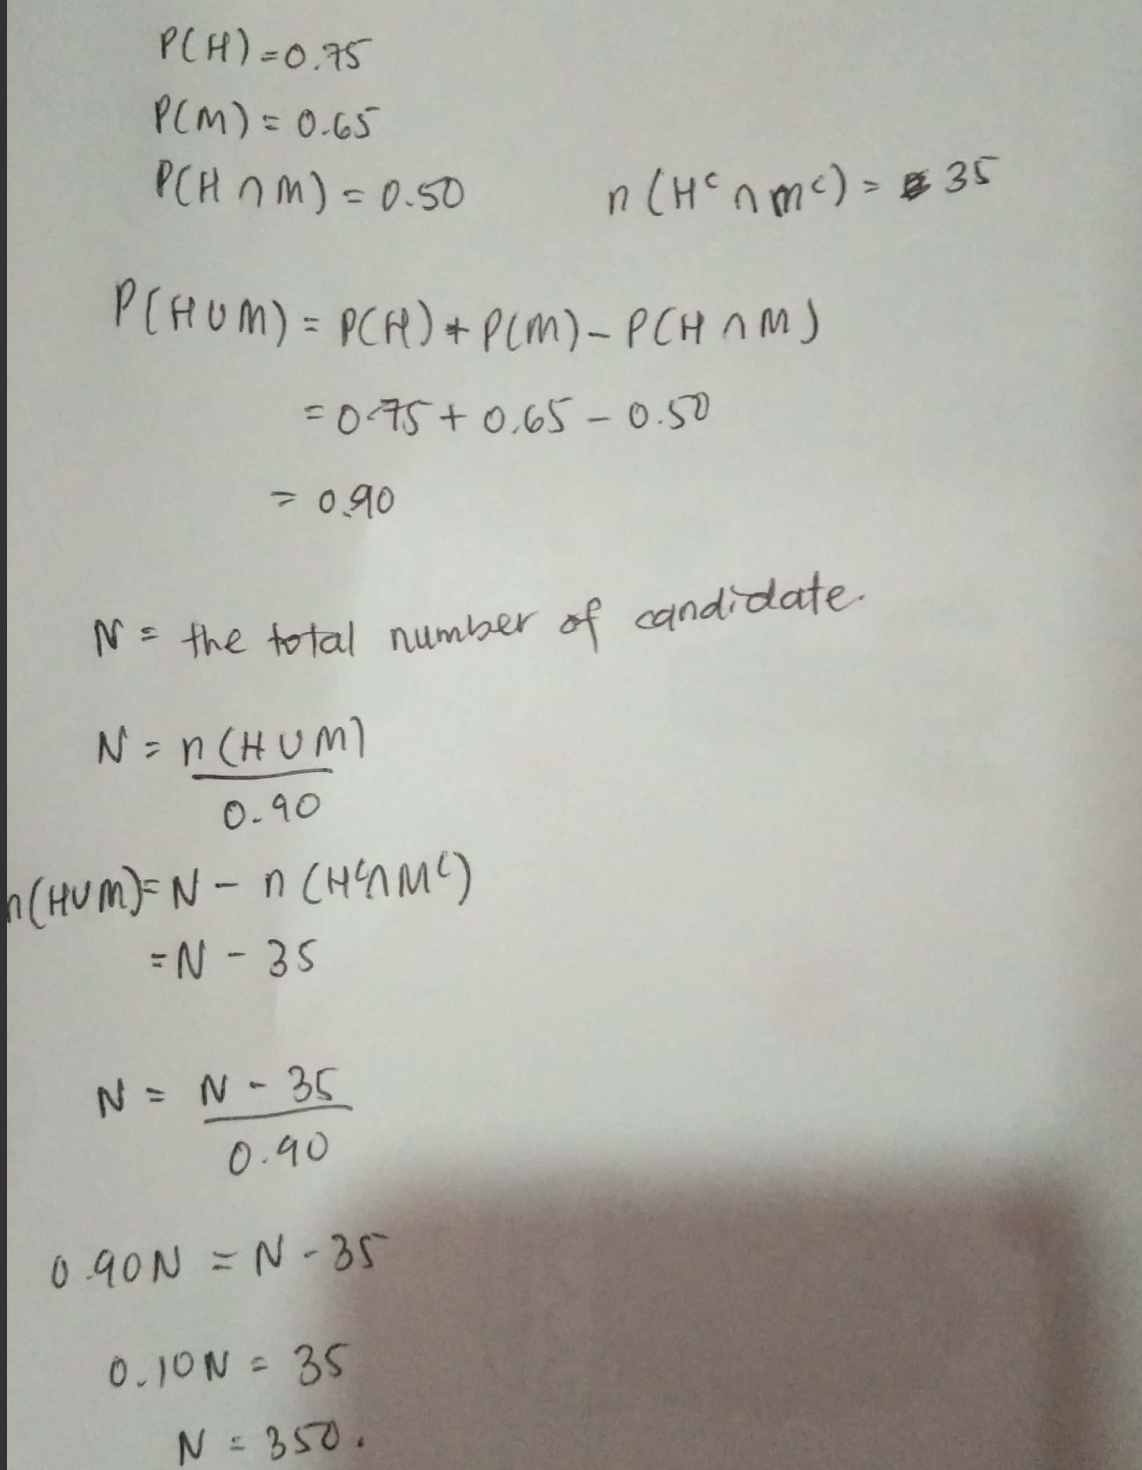 P(H)=0.75
P(M) = 0.65
P(H ∩ M) = 0.50 n (Hᶜ ∩ mᶜ) = 35
P(H ∪ M) = P(H) + P(M) - P(H ∩ M)
= 0.75 + 0.65 - 0.50
= 0.90
N = the total number of candidate.
N = n (H ∪ M)
0.90
n(H∪M) = N - n (Hᶜ∩Mᶜ)
= N - 35
N = N - 35
0.90
0.90N = N - 35
0.10N = 35
N = 350.